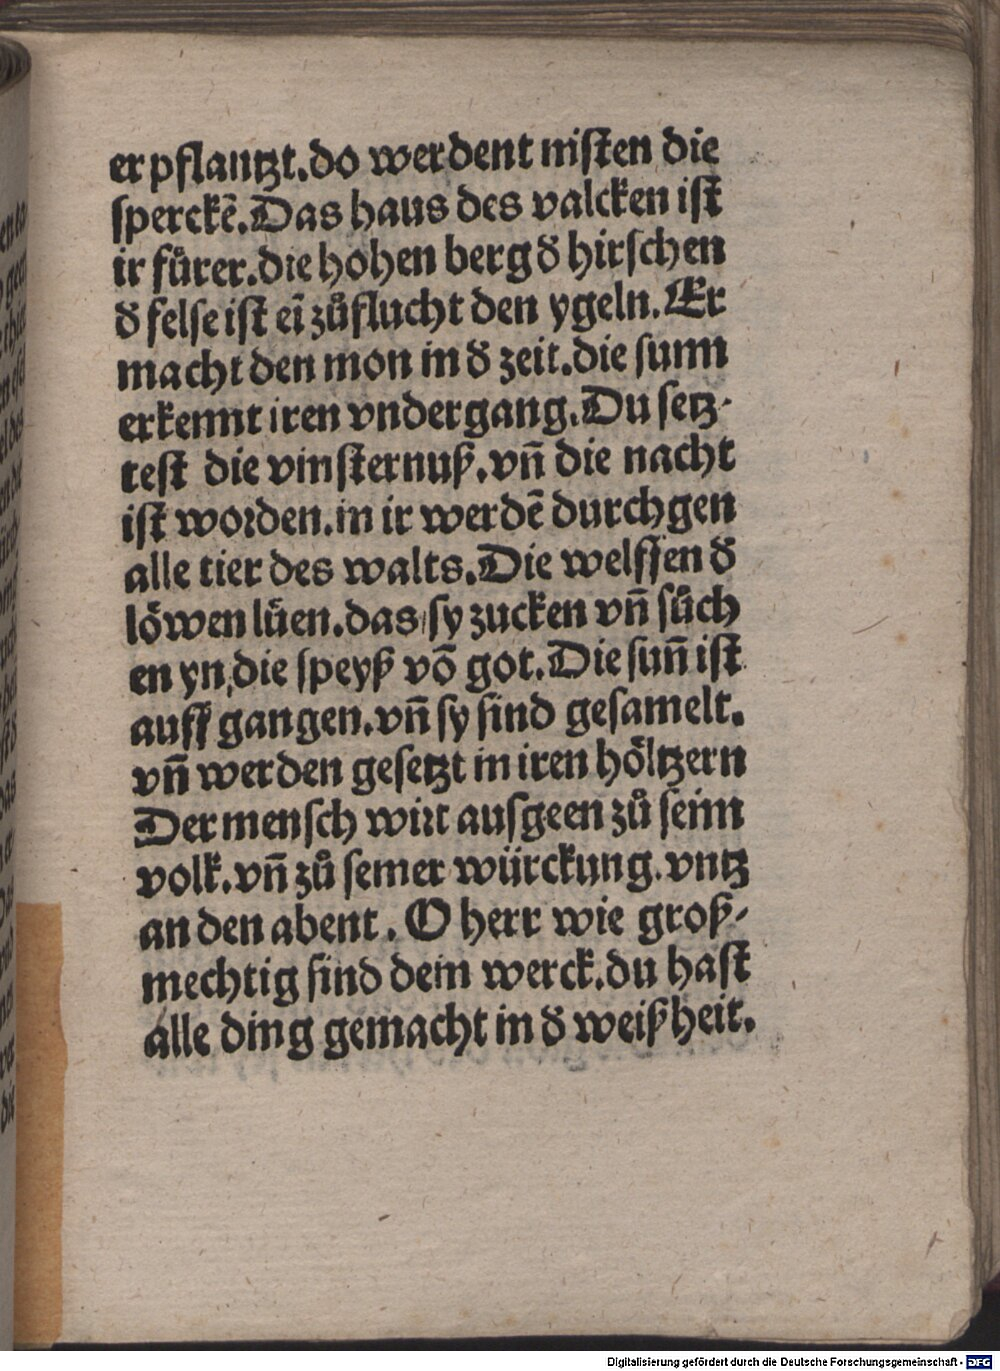 er pflantzt.do werdent nisten die
sperckē.Das haus des valcken ist
ir fuͤrer.die hohen berg đ hirschen
đ felse ist eī zuͦflucht den ygeln.Er
macht den mon in đ zeit.die sunn
erkennt iren vndergang.Du setz-
test die vinsternuß.vñ die nacht
ist worden.in ir werdē durchgen
alle tier des walts.Die welffen đ
loͤwen luͤen.das sy zucken vñ suͦch
en yn die speyß vō got.Die suñ ist
auff gangen.vñ sy sind gesamelt.
vñ werden gesetzt in iren hoͤltzern
Der mensch wirt ausgeen zuͦ seim
volk.vñ zuͦ seiner würckung.vntz
an den abent. O herr wie groß-
mechtig sind dein werck.du hast
alle ding gemacht in đ weißheit.
Digitalisierung gefördert durch die Deutsche Forschungsgemeinschaft - DFG